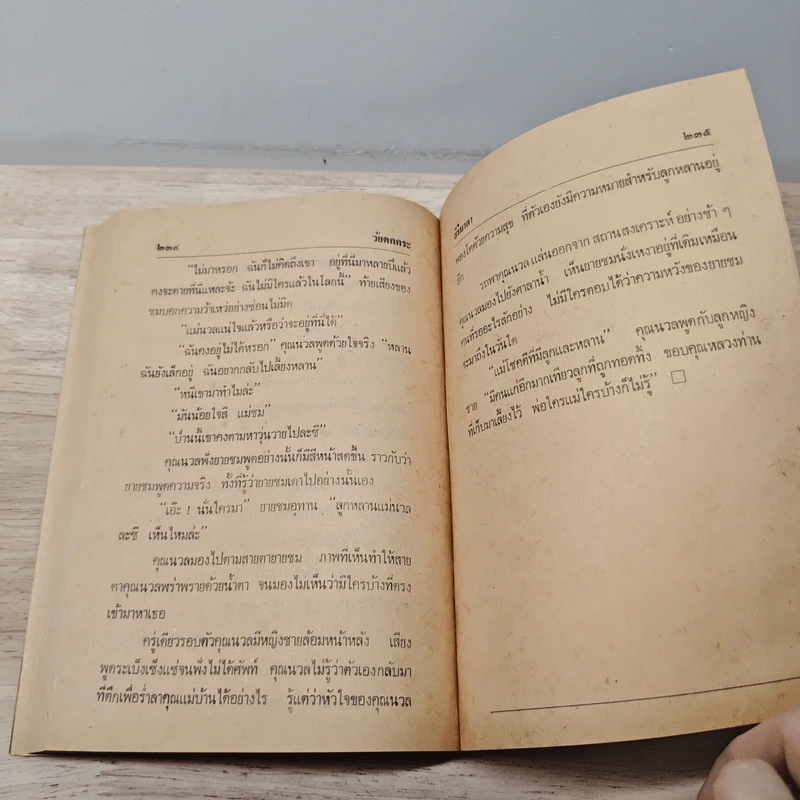 ๒๓๔ วัยตกกระ
“ไม่มาหรอก ฉันก็ไม่คิดถึงเขา อยู่ที่นี่มาหลายปีแล้ว
คงจะตายที่นี่แหละจ้ะ ฉันไม่มีใครแล้วในโลกนี้” ท้ายเสียงของ
ชมบอกความว้าเหว่อย่างซ่อนไม่มิด
“แม่นวลแน่ใจแล้วหรือว่าจะอยู่ที่นี่ได้”
“ฉันคงอยู่ไม่ได้หรอก” คุณนวลพูดด้วยใจจริง “หลาน
ฉันยังเล็กอยู่ ฉันอยากกลับไปเลี้ยงหลาน”
“หนีเขามาทำไมล่ะ”
“มันน้อยใจสิ แม่ชม”
“ป่านนี้เขาคงตามหาวุ่นวายไปละซี”
คุณนวลฟังยายชมพูดอย่างนั้นก็มีสีหน้าสดชื่น ราวกับว่า
ยายชมพูดความจริง ทั้งที่รู้ว่ายายชมเดาไปอย่างนั้นเอง
“เอ๊ะ ! นั่นใครมา” ยายชมอุทาน “ลูกหลานแม่นวล
ละซี เห็นไหมล่ะ”
คุณนวลมองไปตามสายตายายชม ภาพที่เห็นทำให้สาย
ตาคุณนวลพร่าพรายด้วยน้ำตา จนมองไม่เห็นว่ามีใครบ้างที่ตรง
เข้ามาหาเธอ
ครู่เดียวรอบตัวคุณนวลมีหญิงชายล้อมหน้าหลัง เสียง
พูดระเบ็งเซ็งแซ่จนฟังไม่ได้ศัพท์ คุณนวลไม่รู้ว่าตัวเองกลับมา
ที่ตึกเพื่อร่ำลาคุณแม่บ้านได้อย่างไร รู้แต่ว่าหัวใจของคุณนวล
๒๓๕
พองโตด้วยความสุข ที่ตัวเองยังมีความหมายสำหรับลูกหลานอยู่
อีก
รถพาคุณนวลแล่นออกจาก สถานสงเคราะห์ อย่างช้า ๆ
คุณนวลมองไปยังศาลาน้ำ เห็นยายชมนั่งเหงาอยู่ที่เดิมเหมือน
คนที่รออะไรสักอย่าง ไม่มีใครตอบได้ว่าความหวังของยายชม
จะมาถึงในวันใด
“แม่โชคดีที่มีลูกและหลาน” คุณนวลพูดกับลูกหญิง
ชาย “มีคนแก่อีกมากเทียวลูกที่ถูกทอดทิ้ง ขอบคุณหลวงท่าน
ที่เก็บมาเลี้ยงไว้ พ่อใครแม่ใครบ้างก็ไม่รู้” □